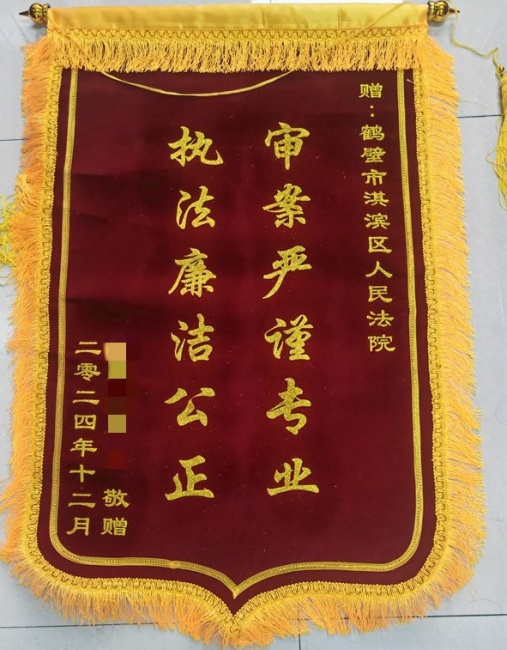 赠：鹤壁市淇滨区人民法院
审案严谨专业
执法廉洁公正
敬赠
二零二四年十二月